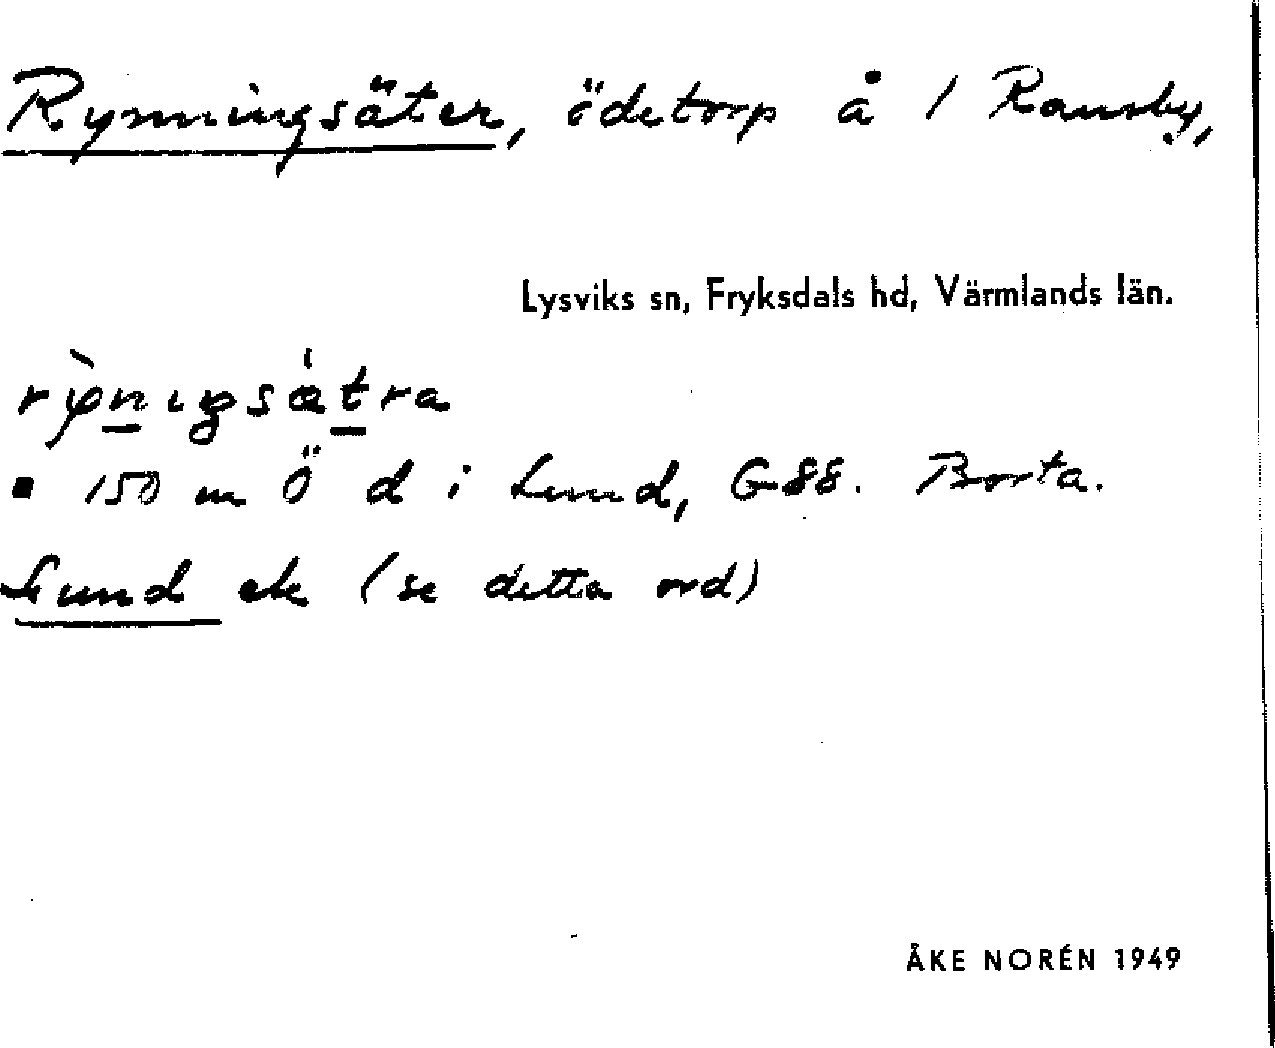 Rynningsäter, ödetorp å 1 Ransby,
Lysviks sn, Fryksdals hd, Värmlands län.
▪ 150 m Ö d i Lund, G88. Borta.
Lund ek (se detta ord)
ÅKE NORÉN 1949